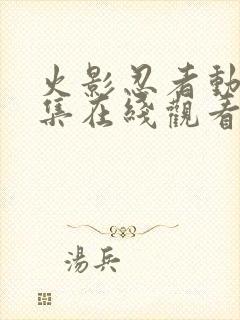 火影忍者動
集在綫觀看
湯兵